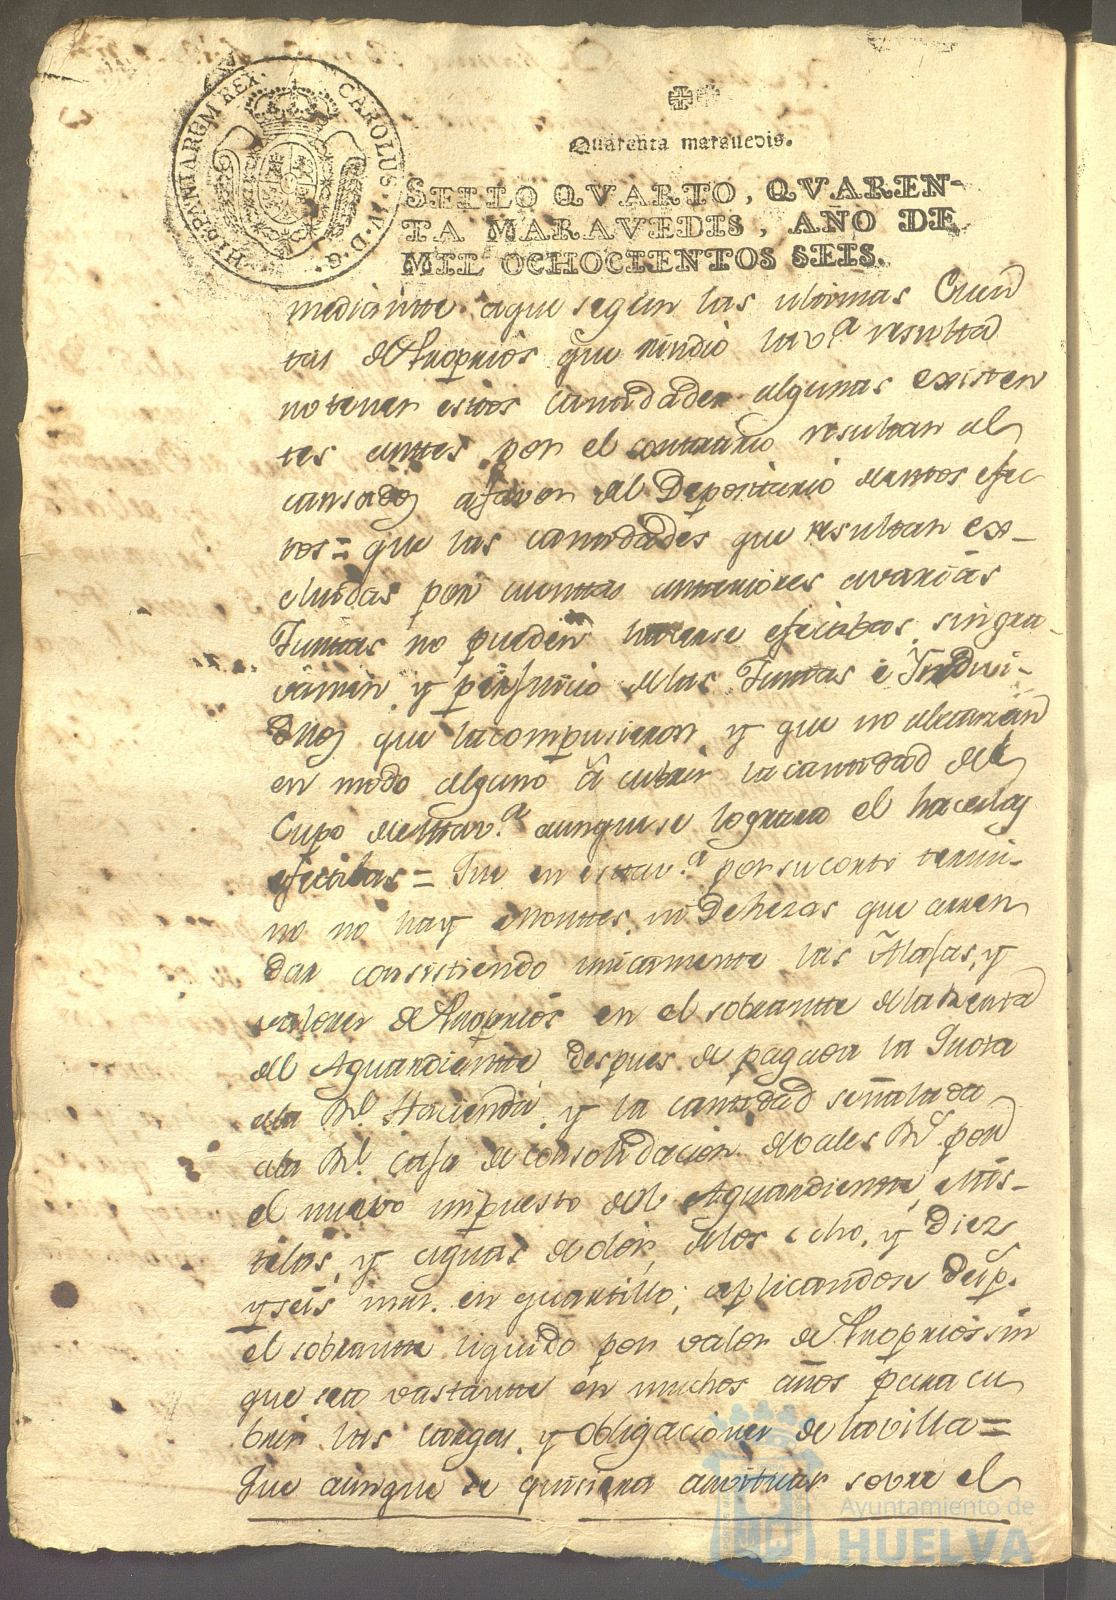 HISPANIARUM REX. CAROLUS. IV. D. G.
Quarenta maravedis.
SELLO QVARTO, QVAREN-
TA MARAVEDIS, AÑO DE
MIL OCHOCIENTOS SEIS.
mediante aque segun las ultimas Cuen
tas de Proprios que rindio la v.ª resulta
no tener estos cantidades algunas existen
tes antes por el contrario resultan al
cansados afavor del Depositario destos efec
tos = que las cantidades que resultan ex-
cluidas por cuentas anteriores avarias
Juntas no pueden hacerse efectibas singra-
vamen, y perjuicio delas Juntas é Yndivi-
duos que lacompusieron, y que no alcanzan
en modo alguno á cubrir lacantidad del
Cupo deesttav.ª aunquese lograra el hacerlas
efectibas = Que en esttav.ª porsucorto termi-
no no hay Montes, ni Dehezas que arren
dar consistiendo unicamente las Alajas, y
valores de Proprios en el sobrante dela Renta
del Aguardiente despues de pagada la Quota
ala Rl. Hacienda, y la cantidad señalada
ala Rl. Caja de consolidacion de Vales Rs. por
el nuebo impuesto del Aguardiente, Mis-
telas, y aguas de olor, delos ocho, y Diez
yseis mrs. en quartillo; aplicandose desp.s
el sobrante liquido por valor de Propriossin
que sea vastante en muchos años para cu
brir las cargas, y obligaciones de lavilla =
Que aunque se quisiera arvitrar sobre el
Ayuntamiento de
HUELVA